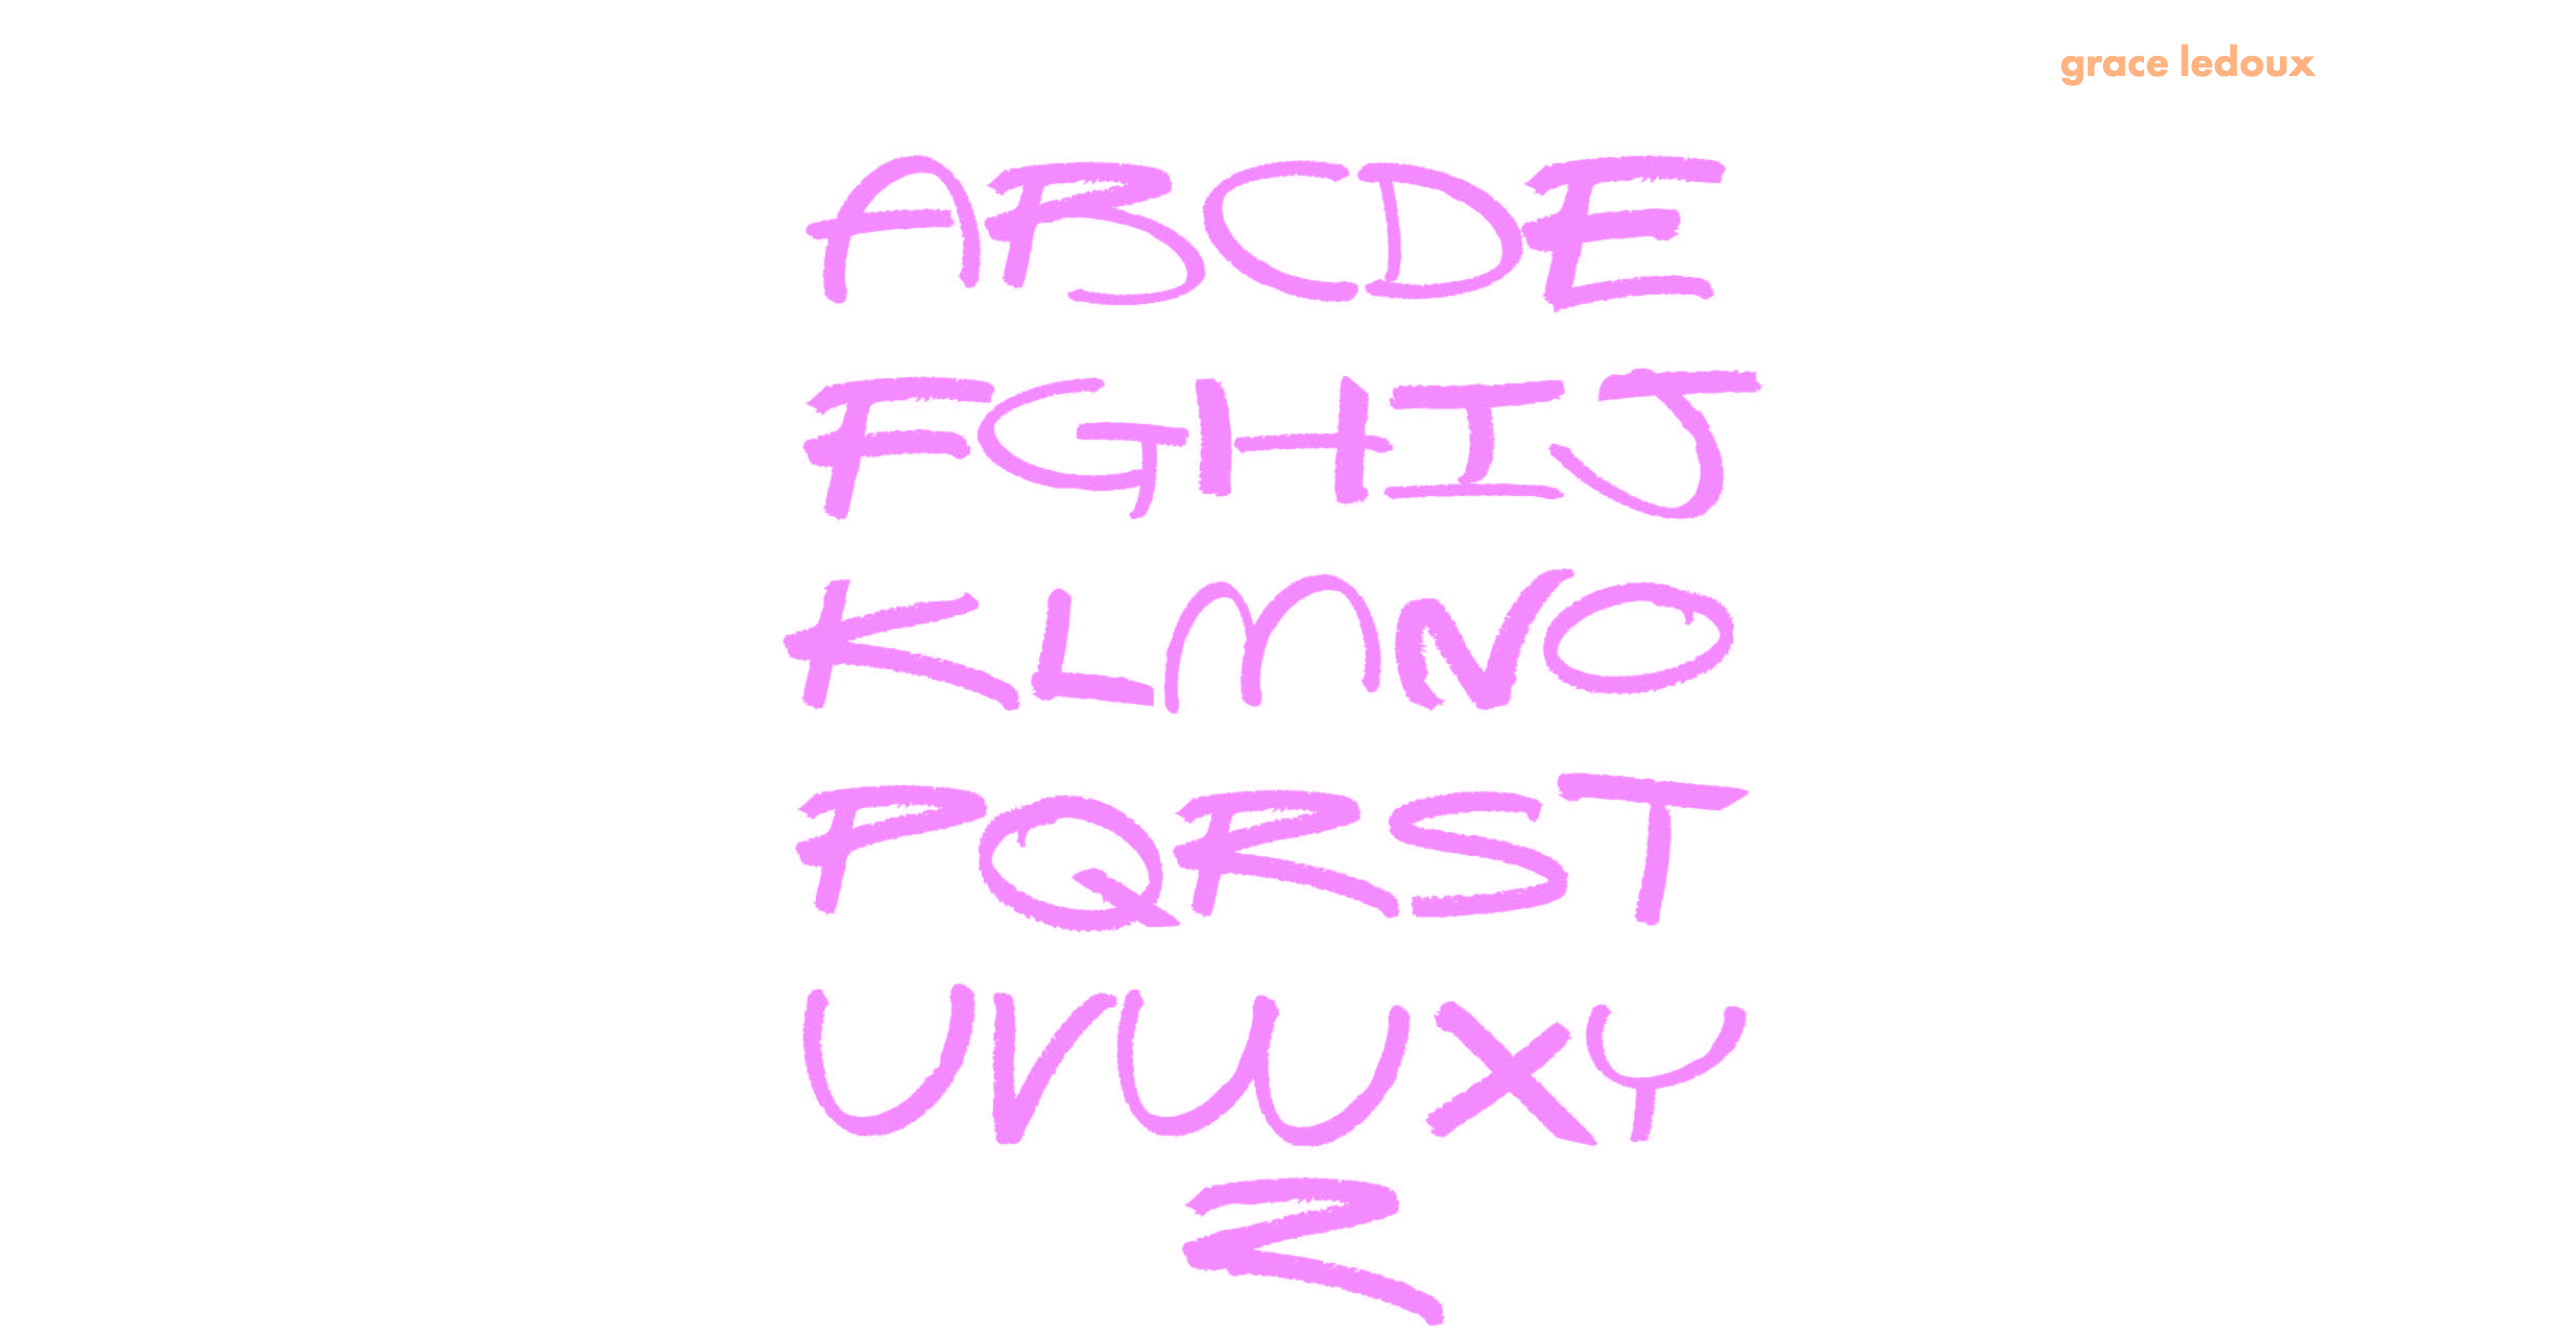 grace ledoux
ABCDE
FGHIJ
KLMNO
PQRST
UVWXY
Z